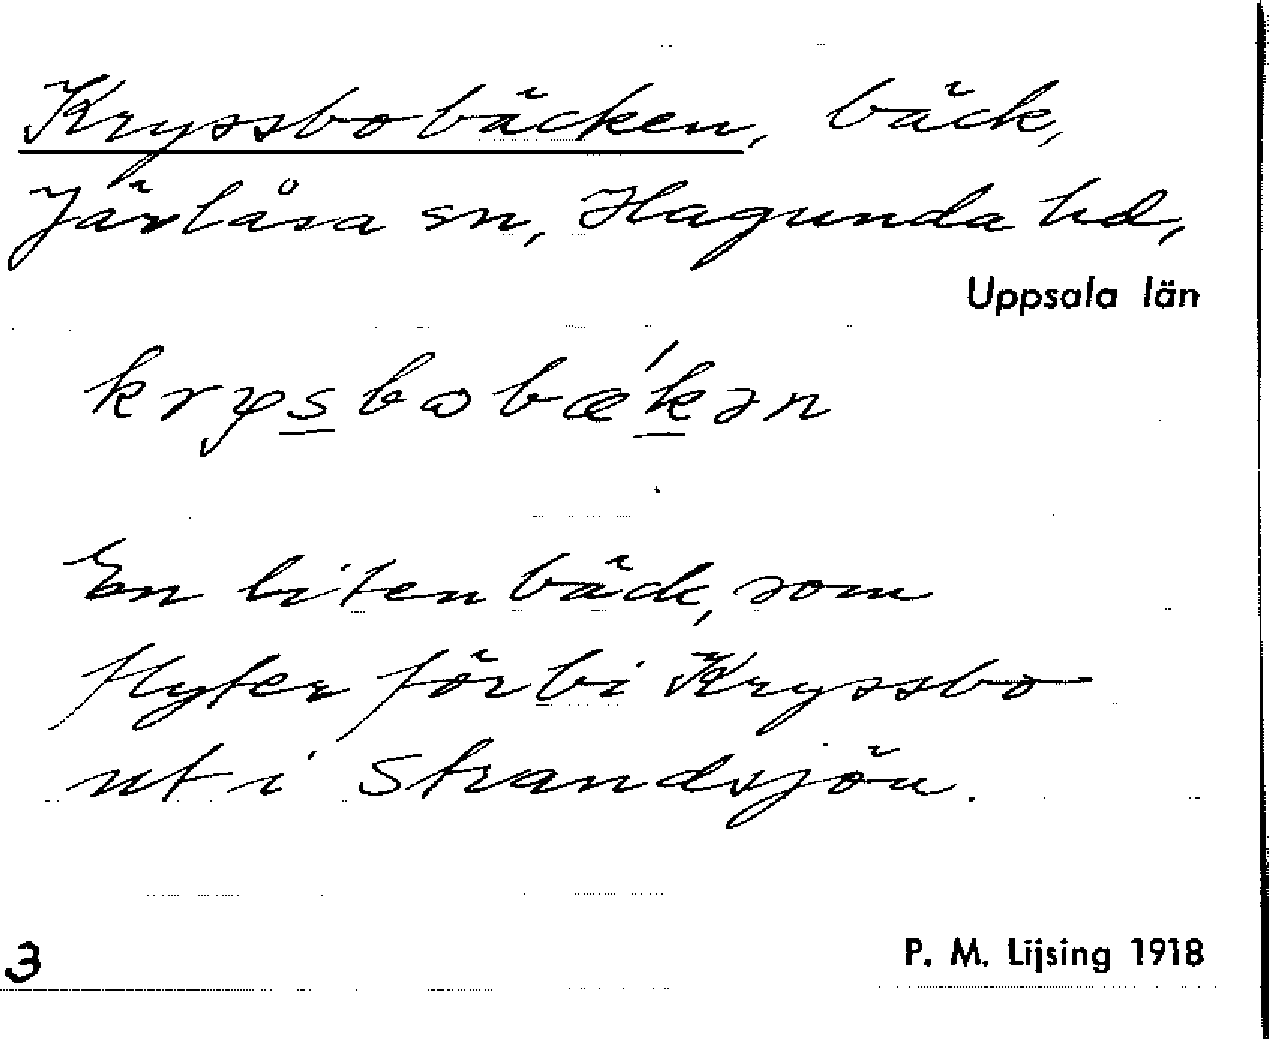 Kryssbobäcken, bäck,
Järlåsa sn, Hagunda hd,
Uppsala län
krysbobæ´kən
En liten bäck, som
flyter förbi Kryssbo
ut i Strandsjön.
3
P. M. Lijsing 1918